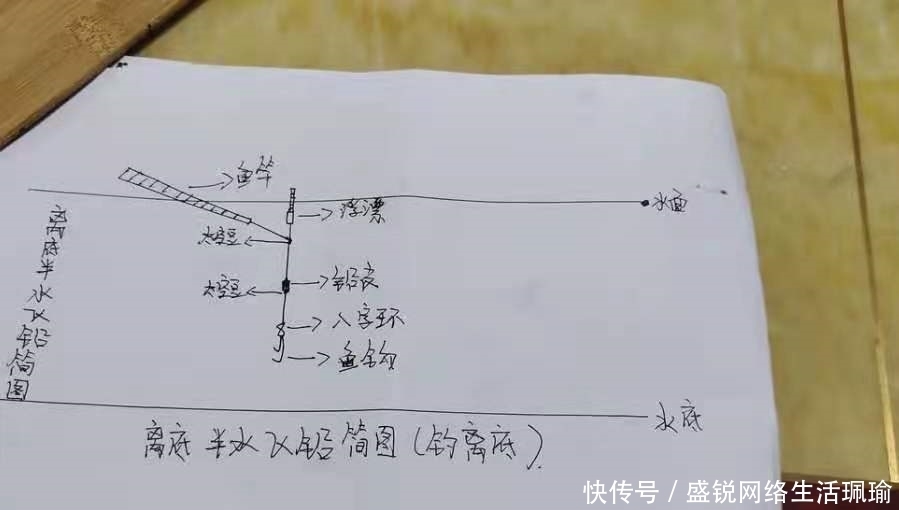 鱼竿
水面
浮漂
太空豆
铅皮
太空豆
八字环
鱼钩
离底半水飞铅简图
水底
离底半水飞铅简图(钓离底).
快传号 / 盛锐网络生活珮瑜